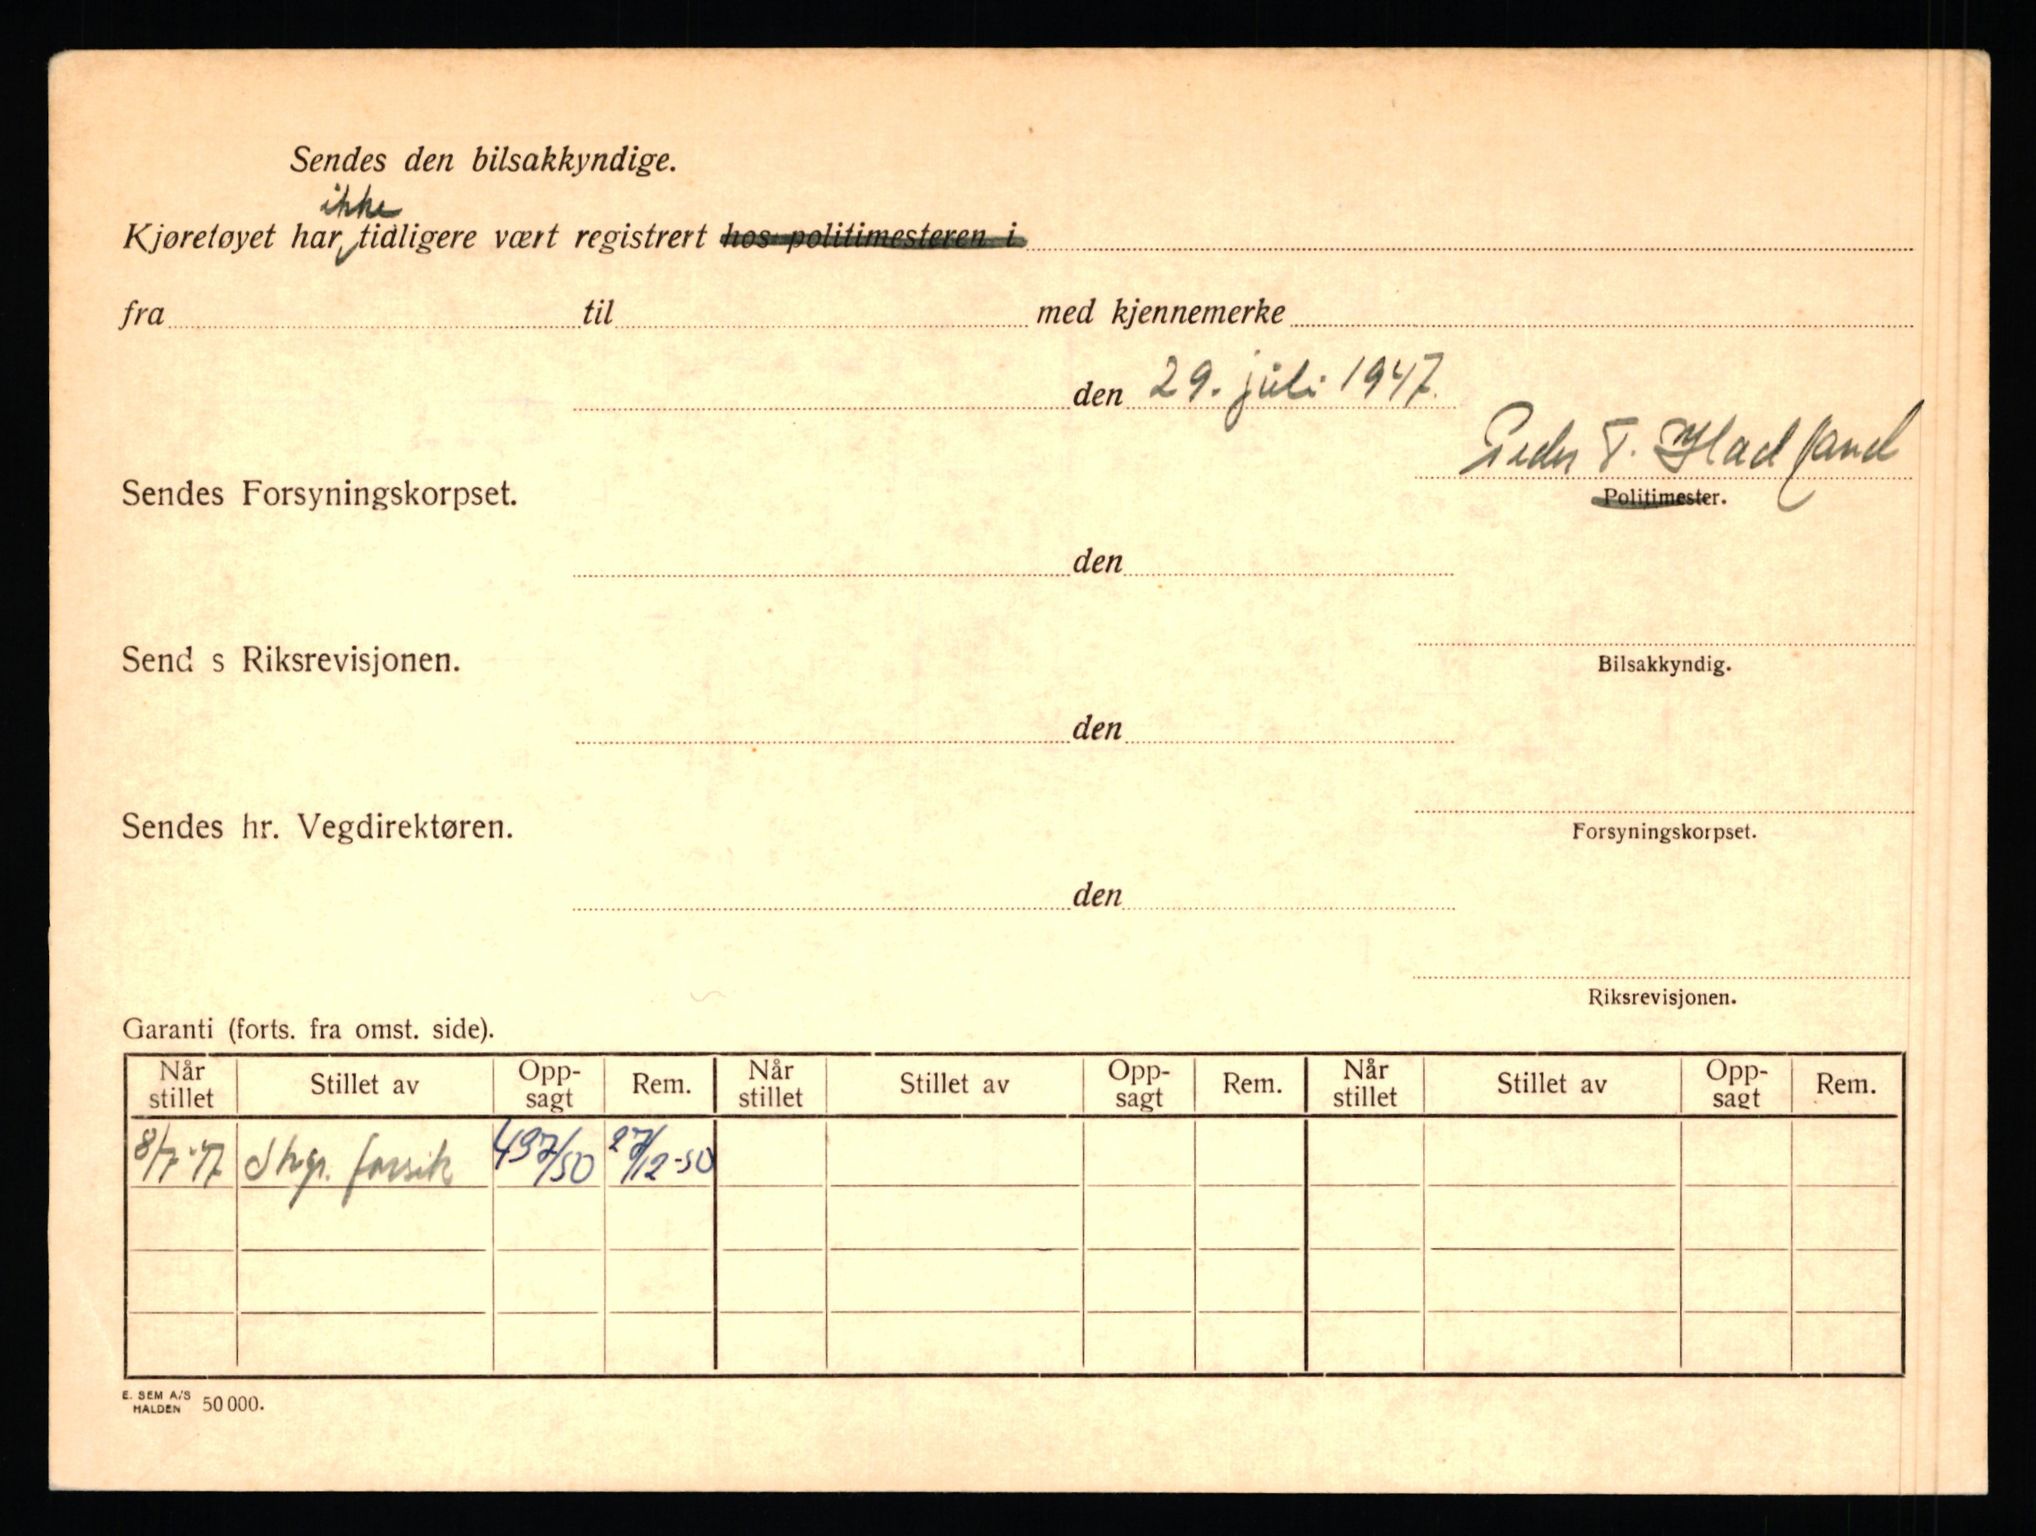 Sendes den bilsakkyndige.
ikke
Kjøretøyet har tidligere vært registrert hos politimesteren i
fra til med kjennemerke
den 29. juli 1947.
Peder T.
Sendes Forsyningskorpset.
Politimester.
den
Send s Riksrevisjonen.
Bilsakkyndig.
den
Sendes hr. Vegdirektøren.
Forsyningskorpset.
den
Riksrevisjonen.
Garanti (forts. fra omst. side).
Når stillet Stillet av Opp-sagt Rem. Når stillet Stillet av Opp-sagt Rem. Når stillet Stillet av Opp-sagt Rem.
8/7-47 Skgr. forsik 497/50 27/12-50
E. SEM A/S
HALDEN 50 000.